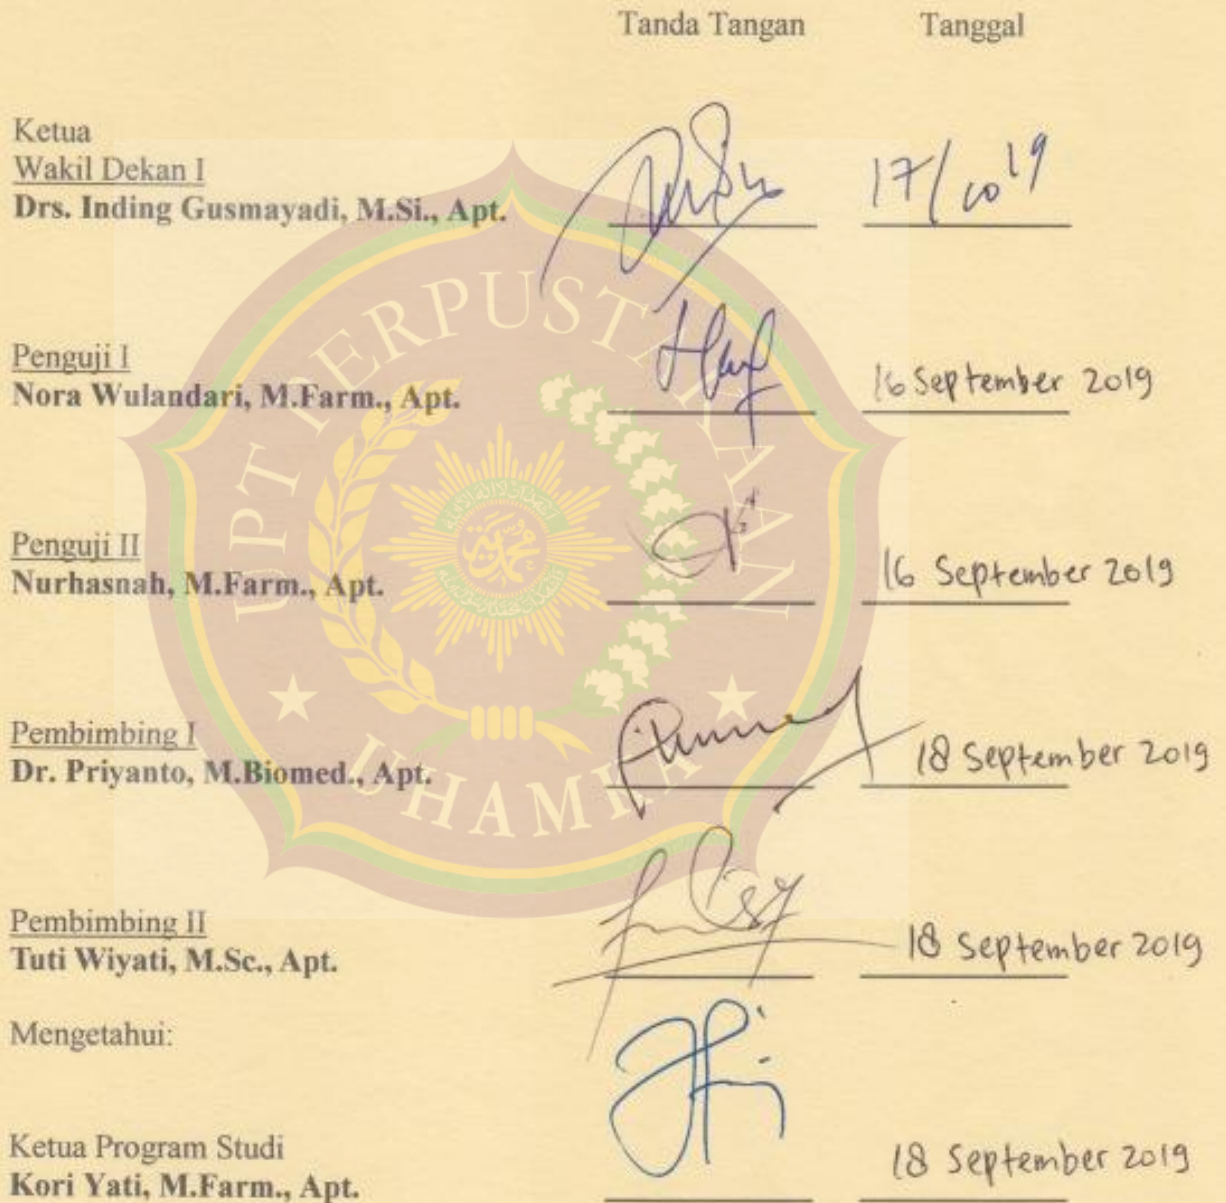 Tanda Tangan Tanggal
Ketua
Wakil Dekan I
Drs. Inding Gusmayadi, M.Si., Apt. 17/10 19
Penguji I
Nora Wulandari, M.Farm., Apt. 16 September 2019
Penguji II
Nurhasnah, M.Farm., Apt. 16 September 2019
Pembimbing I
Dr. Priyanto, M.Biomed., Apt. 18 September 2019
Pembimbing II
Tuti Wiyati, M.Sc., Apt. 18 September 2019
Mengetahui:
Ketua Program Studi
Kori Yati, M.Farm., Apt. 18 September 2019
UPT PERPUSTAKAAN
UHAMKA